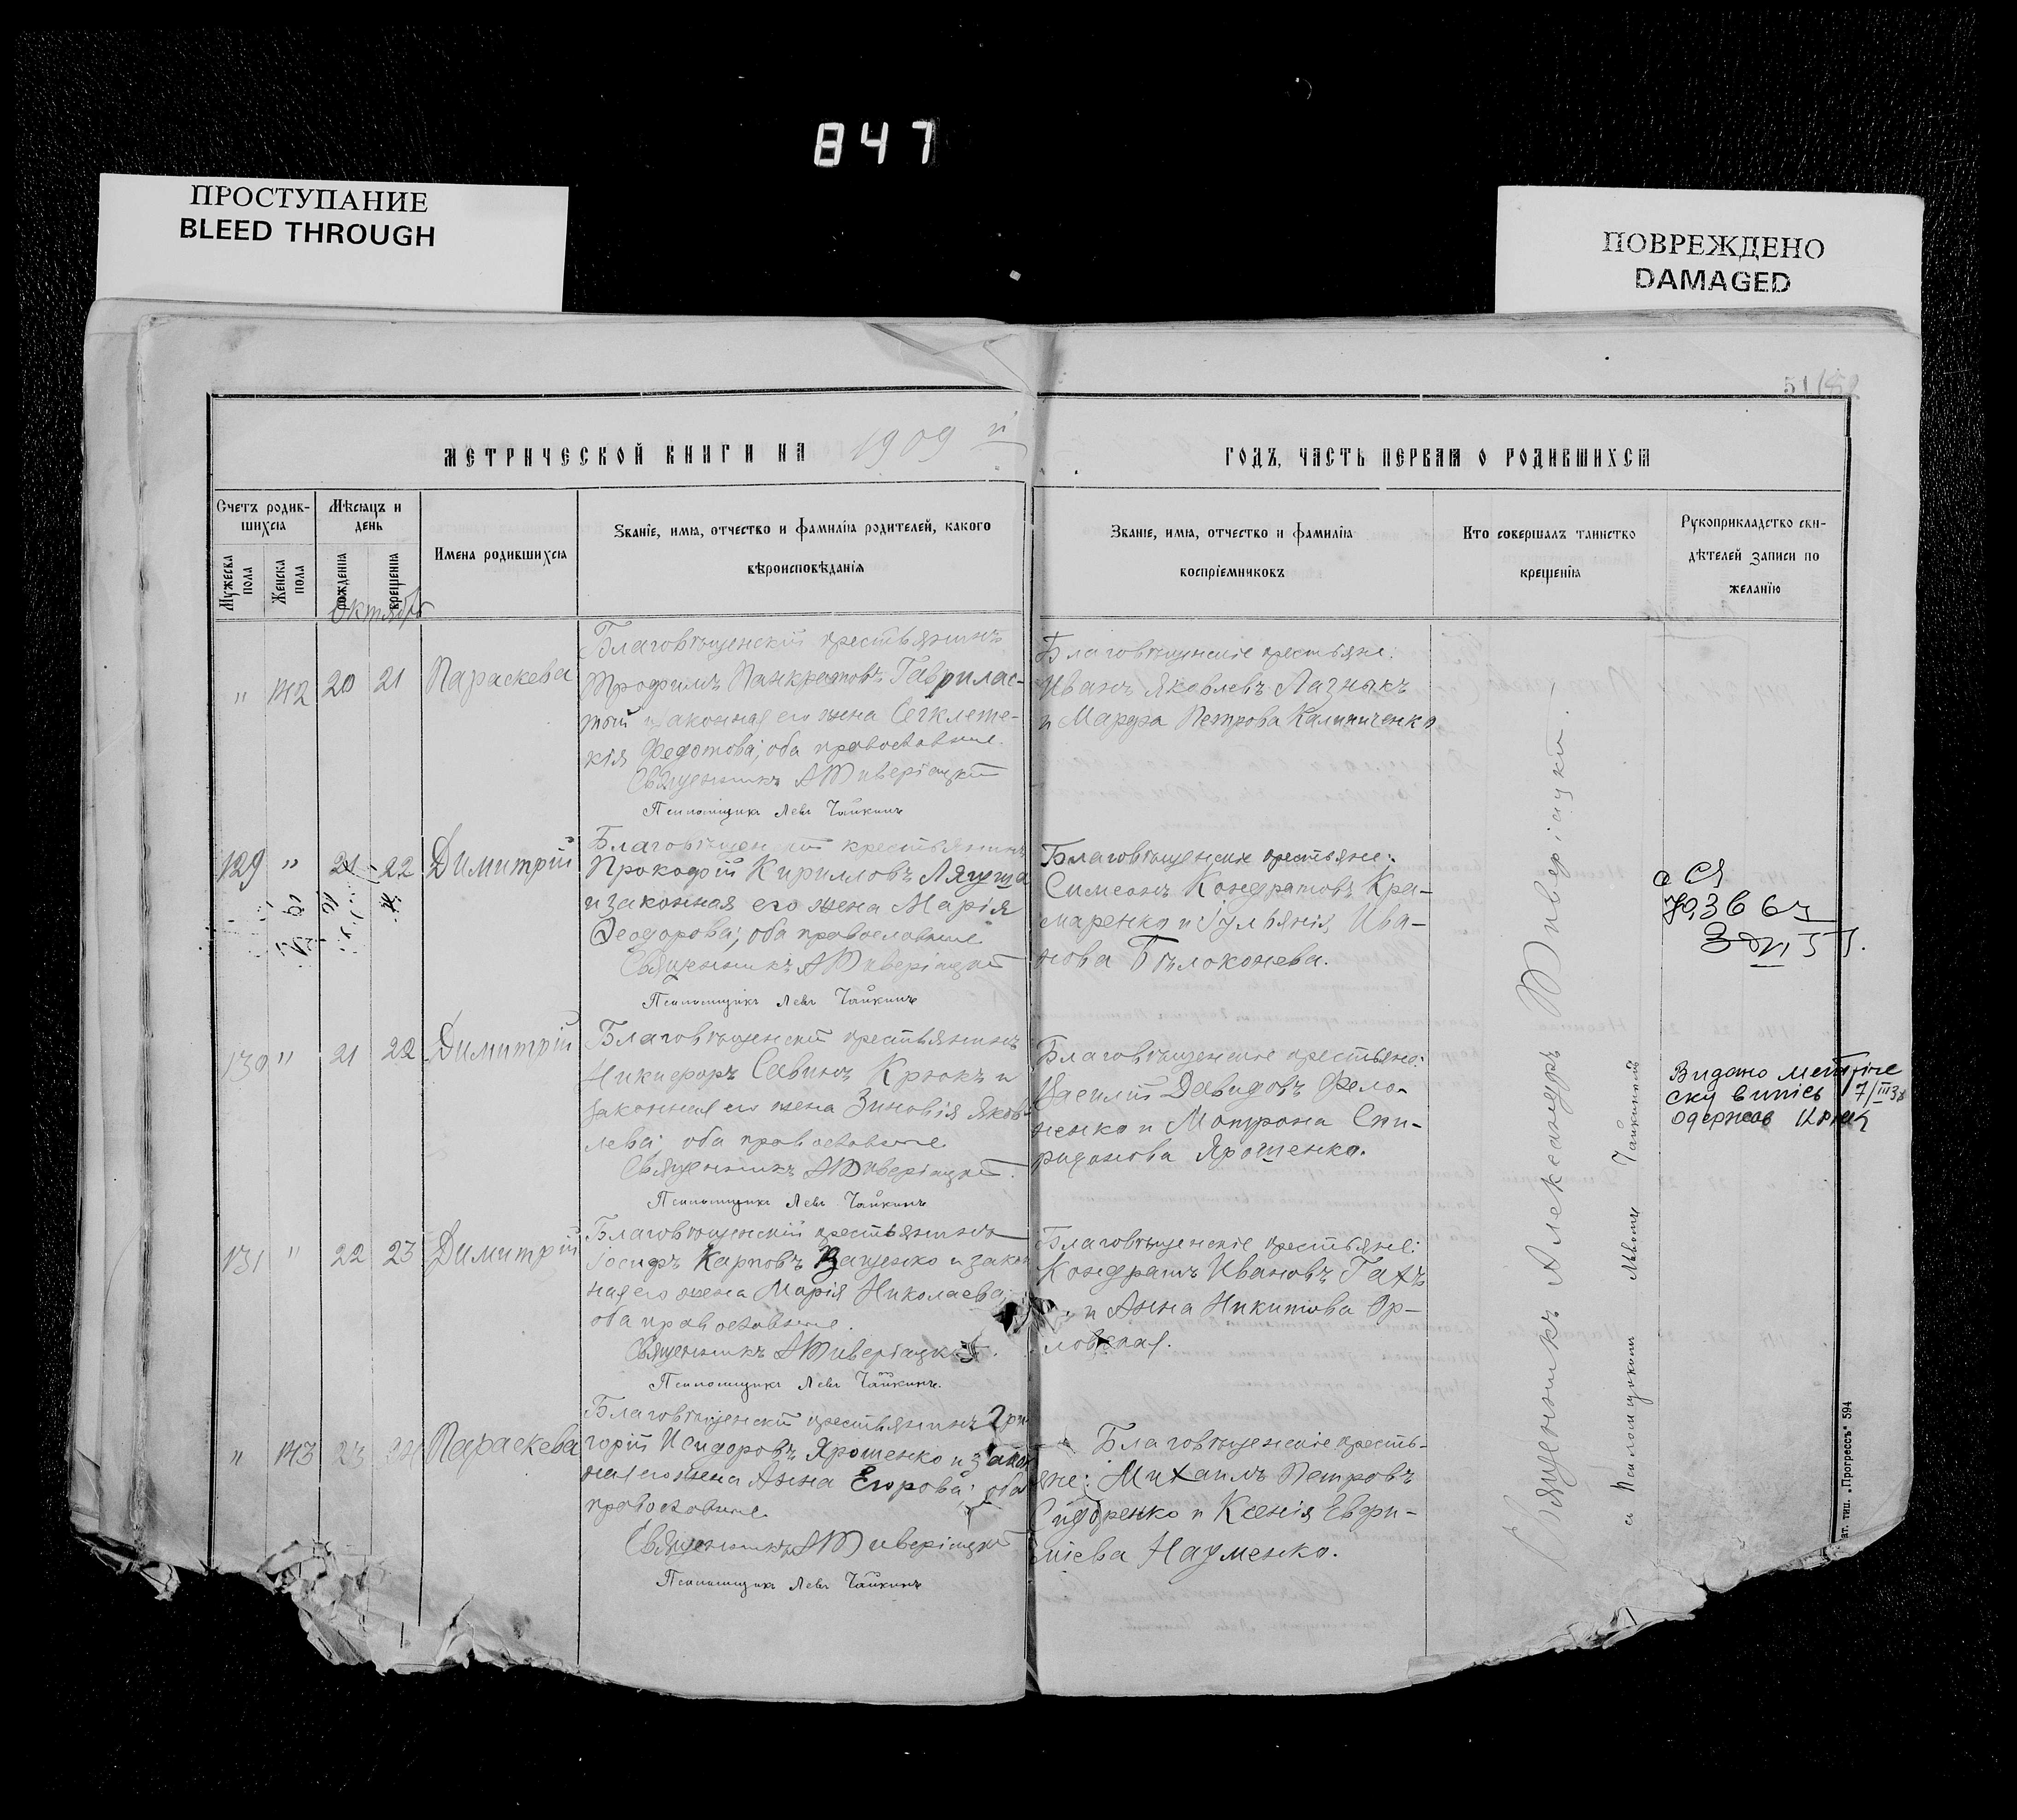 847
ПРОСТУПАНИЕ
BLEED THROUGH
ПОВРЕЖДЕНО
DAMAGED
51
МЕТРИЧЕСКОЙ КНИГИ НА 1909 й
ГОДЪ, ЧАСТЬ ПЕРВАЯ О РОДИВШИХСЯ
Счетъ родив-
шихся
Мужеска пола
Женска пола
Мѣсяцъ и
день
рожденія
крещенія
Имена родившихся
Званіе, имя, отчество и фамилія родителей, какого
вѣроисповѣданія
Званіе, имя, отчество и фамилія
воспріемниковъ
Кто совершалъ таинство
крещенія
Рукоприкладство сви-
дѣтелей записи по
желанію
Октябрь
" 142 20 21 Параскева
Благовѣщенскій крестьянинъ
Трофимъ Панкратовъ Гаврилас-
тый и законная его жена
Федотова; оба православные.
Священникъ АТиверіацкій
Псаломщикъ Левъ Чайкинъ
Благовѣщенскіе крестьяне:
Иванъ Яковлевъ Лазныкъ
и Марфа Петрова Калиниченко
129 " 21 22 Димитрій
Благовѣщенскій крестьянинъ
Прокофій Кирилловъ Лягуша
и законная его жена Марія
Феодорова; оба православные
Священникъ АТиверіацкій
Псаломщикъ Левъ Чайкинъ
Благовѣщенскіе крестьяне:
Симеонъ Кондратовъ Кра-
маренко и Іуліанія Ива-
нова Бѣлоконева.
130 " 21 22 Димитрій
Благовѣщенскій крестьянинъ
Никифоръ Савинъ Крюкъ и
законная его жена Зиновія Яков-
лева; оба православные
Священникъ АТиверіацкій.
Псаломщикъ Левъ Чайкинъ
Благовѣщенскіе крестьяне:
Василій Давидовъ
и Мотрона Спи-
ридонова Ярошенко.
Видано метричне
7/III
одержав Крюк
131 " 22 23 Димитрій
Благовѣщенскій крестьянинъ
Іосифъ Карповъ Ващенко и закон
ная его жена Марія Николаева;
оба православные.
Священникъ АТиверіацкій.
Псаломщикъ Левъ Чайкинъ.
Благовѣщенскіе крестьяне:
Кондратъ Ивановъ Гахъ
и Анна Никитова Ор-
ловская.
" 143 23 24 Параскева
Благовѣщенскій крестьянинъ Гри
горій Исидоровъ Ярошенко и закон
ная его жена Анна Егорова; оба
православные
Священникъ АТиверіацкій
Псаломщикъ Левъ Чайкинъ
Благовѣщенскіе кресть-
яне: Михаилъ Петровъ
Сидоренко и Ксенія Евфи-
міева Науменко.
Священникъ Александръ Тиверіацкій.
съ Псаломщикомъ Львомъ Чайкинымъ
ат. тип. „Прогрессъ" 594